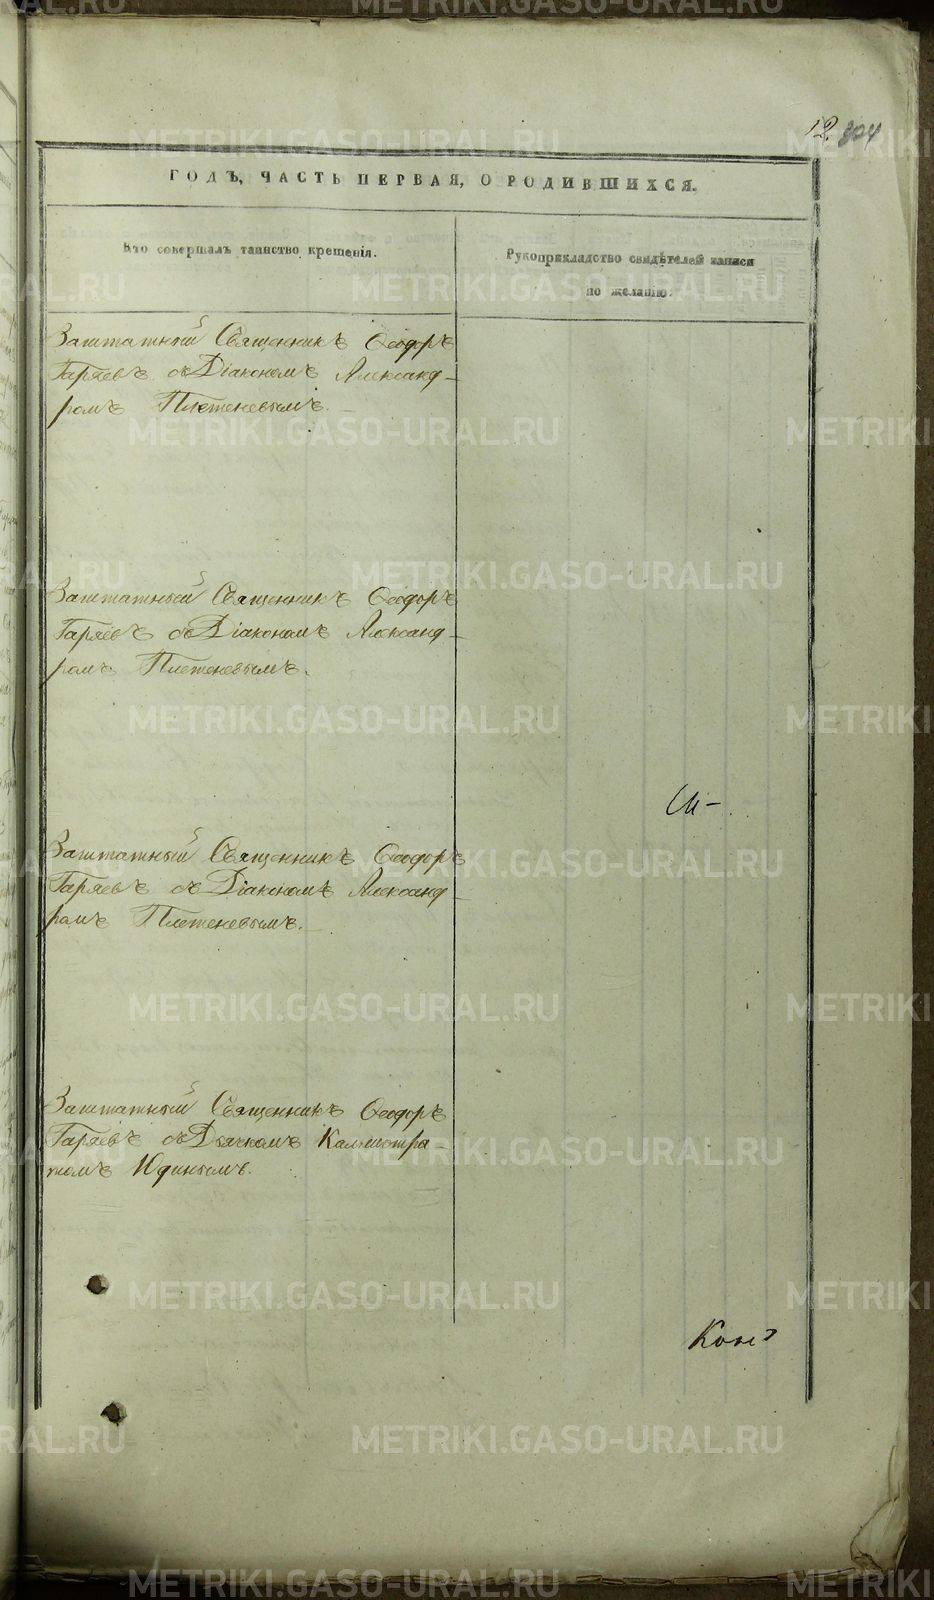 12. 304
ГОДЪ, ЧАСТЬ ПЕРВАЯ, О РОДИВШИХСЯ.
Кто совершалъ таинство крещенія.
Рукоприкладство свидѣтелей записи
по желанію.
Заштатный Священникъ Ѳеодоръ
Гаряевъ съ Діакономъ Александ-
ромъ Плетеневымъ.
Заштатный Священникъ Ѳеодоръ
Гаряевъ съ Діакономъ Александ-
ромъ Плетеневымъ.
Заштатный Священникъ Ѳеодоръ
Гаряевъ съ Діакономъ Александ-
ромъ Плетеневымъ.
Заштатный Священникъ Ѳеодоръ
Гаряевъ съ Дьячкомъ Каллистра
томъ Юдинымъ.
METRIKI.GASO-URAL.RU